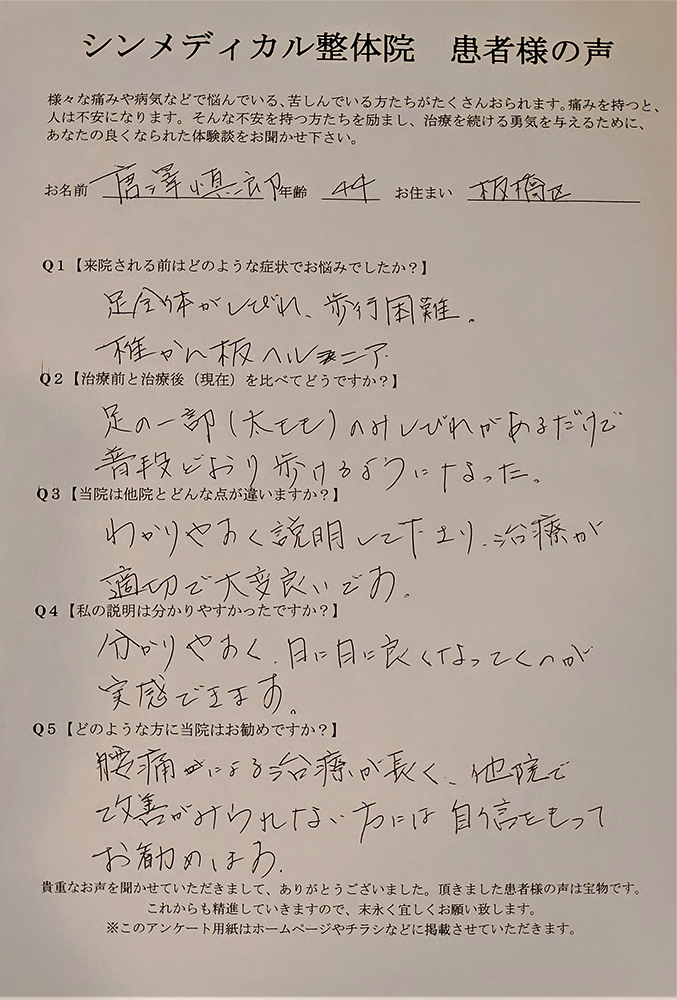 シンメディカル整体院　患者様の声
様々な痛みや病気などで悩んでいる、苦しんでいる方たちがたくさんおられます。痛みを持つと、
人は不安になります。そんな不安を持つ方たちを励まし、治療を続ける勇気を与えるために、
あなたの良くなられた体験談をお聞かせ下さい。
お名前 唐澤慎二郎 年齢 44 お住まい 板橋区
Q1【来院される前はどのような症状でお悩みでしたか？】
足全体がしびれ、歩行困難。
椎かん板ヘルニア
Q2【治療前と治療後（現在）を比べてどうですか？】
足の一部(太もも)のみしびれがあるだけで
普段どおり歩けるようになった。
Q3【当院は他院とどんな点が違いますか？】
わかりやすく説明して下さり、治療が
適切で大変良いです。
Q4【私の説明は分かりやすかったですか？】
分かりやすく、日に日に良くなってくのが
実感できます。
Q5【どのような方に当院はお勧めですか？】
腰痛による治療が長く、他院で
改善がみられない方には自信をもって
お勧めします.
貴重なお声を聞かせていただきまして、ありがとうございました。頂きました患者様の声は宝物です。
これからも精進していきますので、末永く宜しくお願い致します。
※このアンケート用紙はホームページやチラシなどに掲載させていただきます。